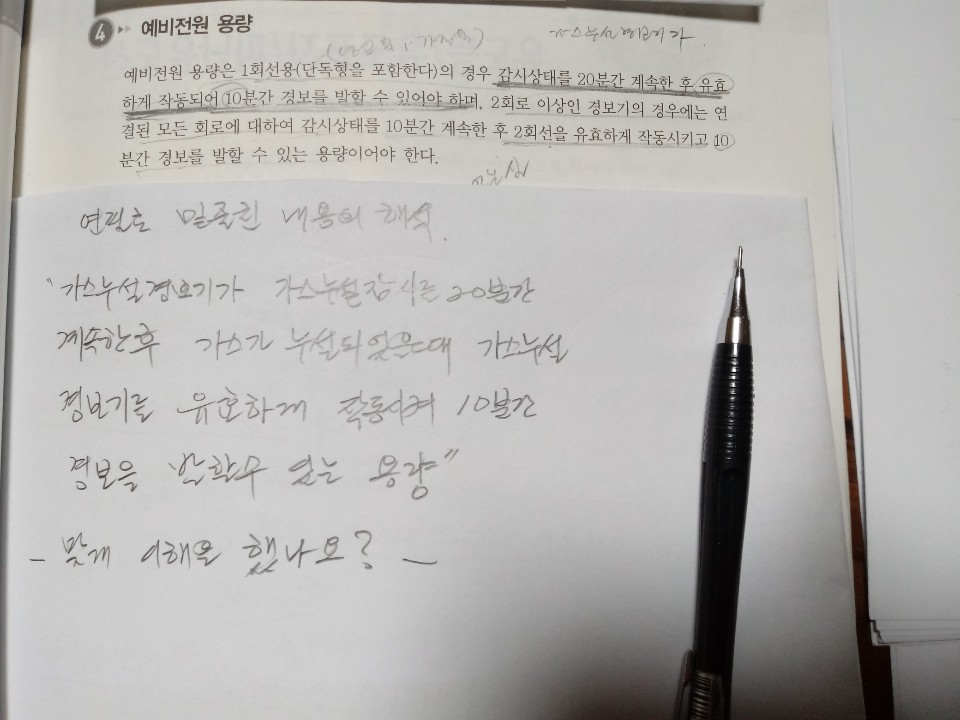 4 예비전원 용량
가스누설경보기다.
예비전원 용량은 1회선용(단독형을 포함한다)의 경우 감시상태를 20분간 계속한 후 유효
하게 작동되어 10분간 경보를 발할 수 있어야 하며, 2회로 이상인 경보기의 경우에는 연
결된 모든 회로에 대하여 감시상태를 10분간 계속한 후 2회선을 유효하게 작동시키고 10
분간 경보를 발할 수 있는 용량이어야 한다.
연필로 밑줄친 내용의 해석.
"가스누설경보기가 가스누설감시를 20분간
계속한후 가스가 누설되었을때 가스누설
경보기를 유효하게 작동시켜 10분간
경보을 발할수 있는 용량"
- 맞게 이해을 했나요? -